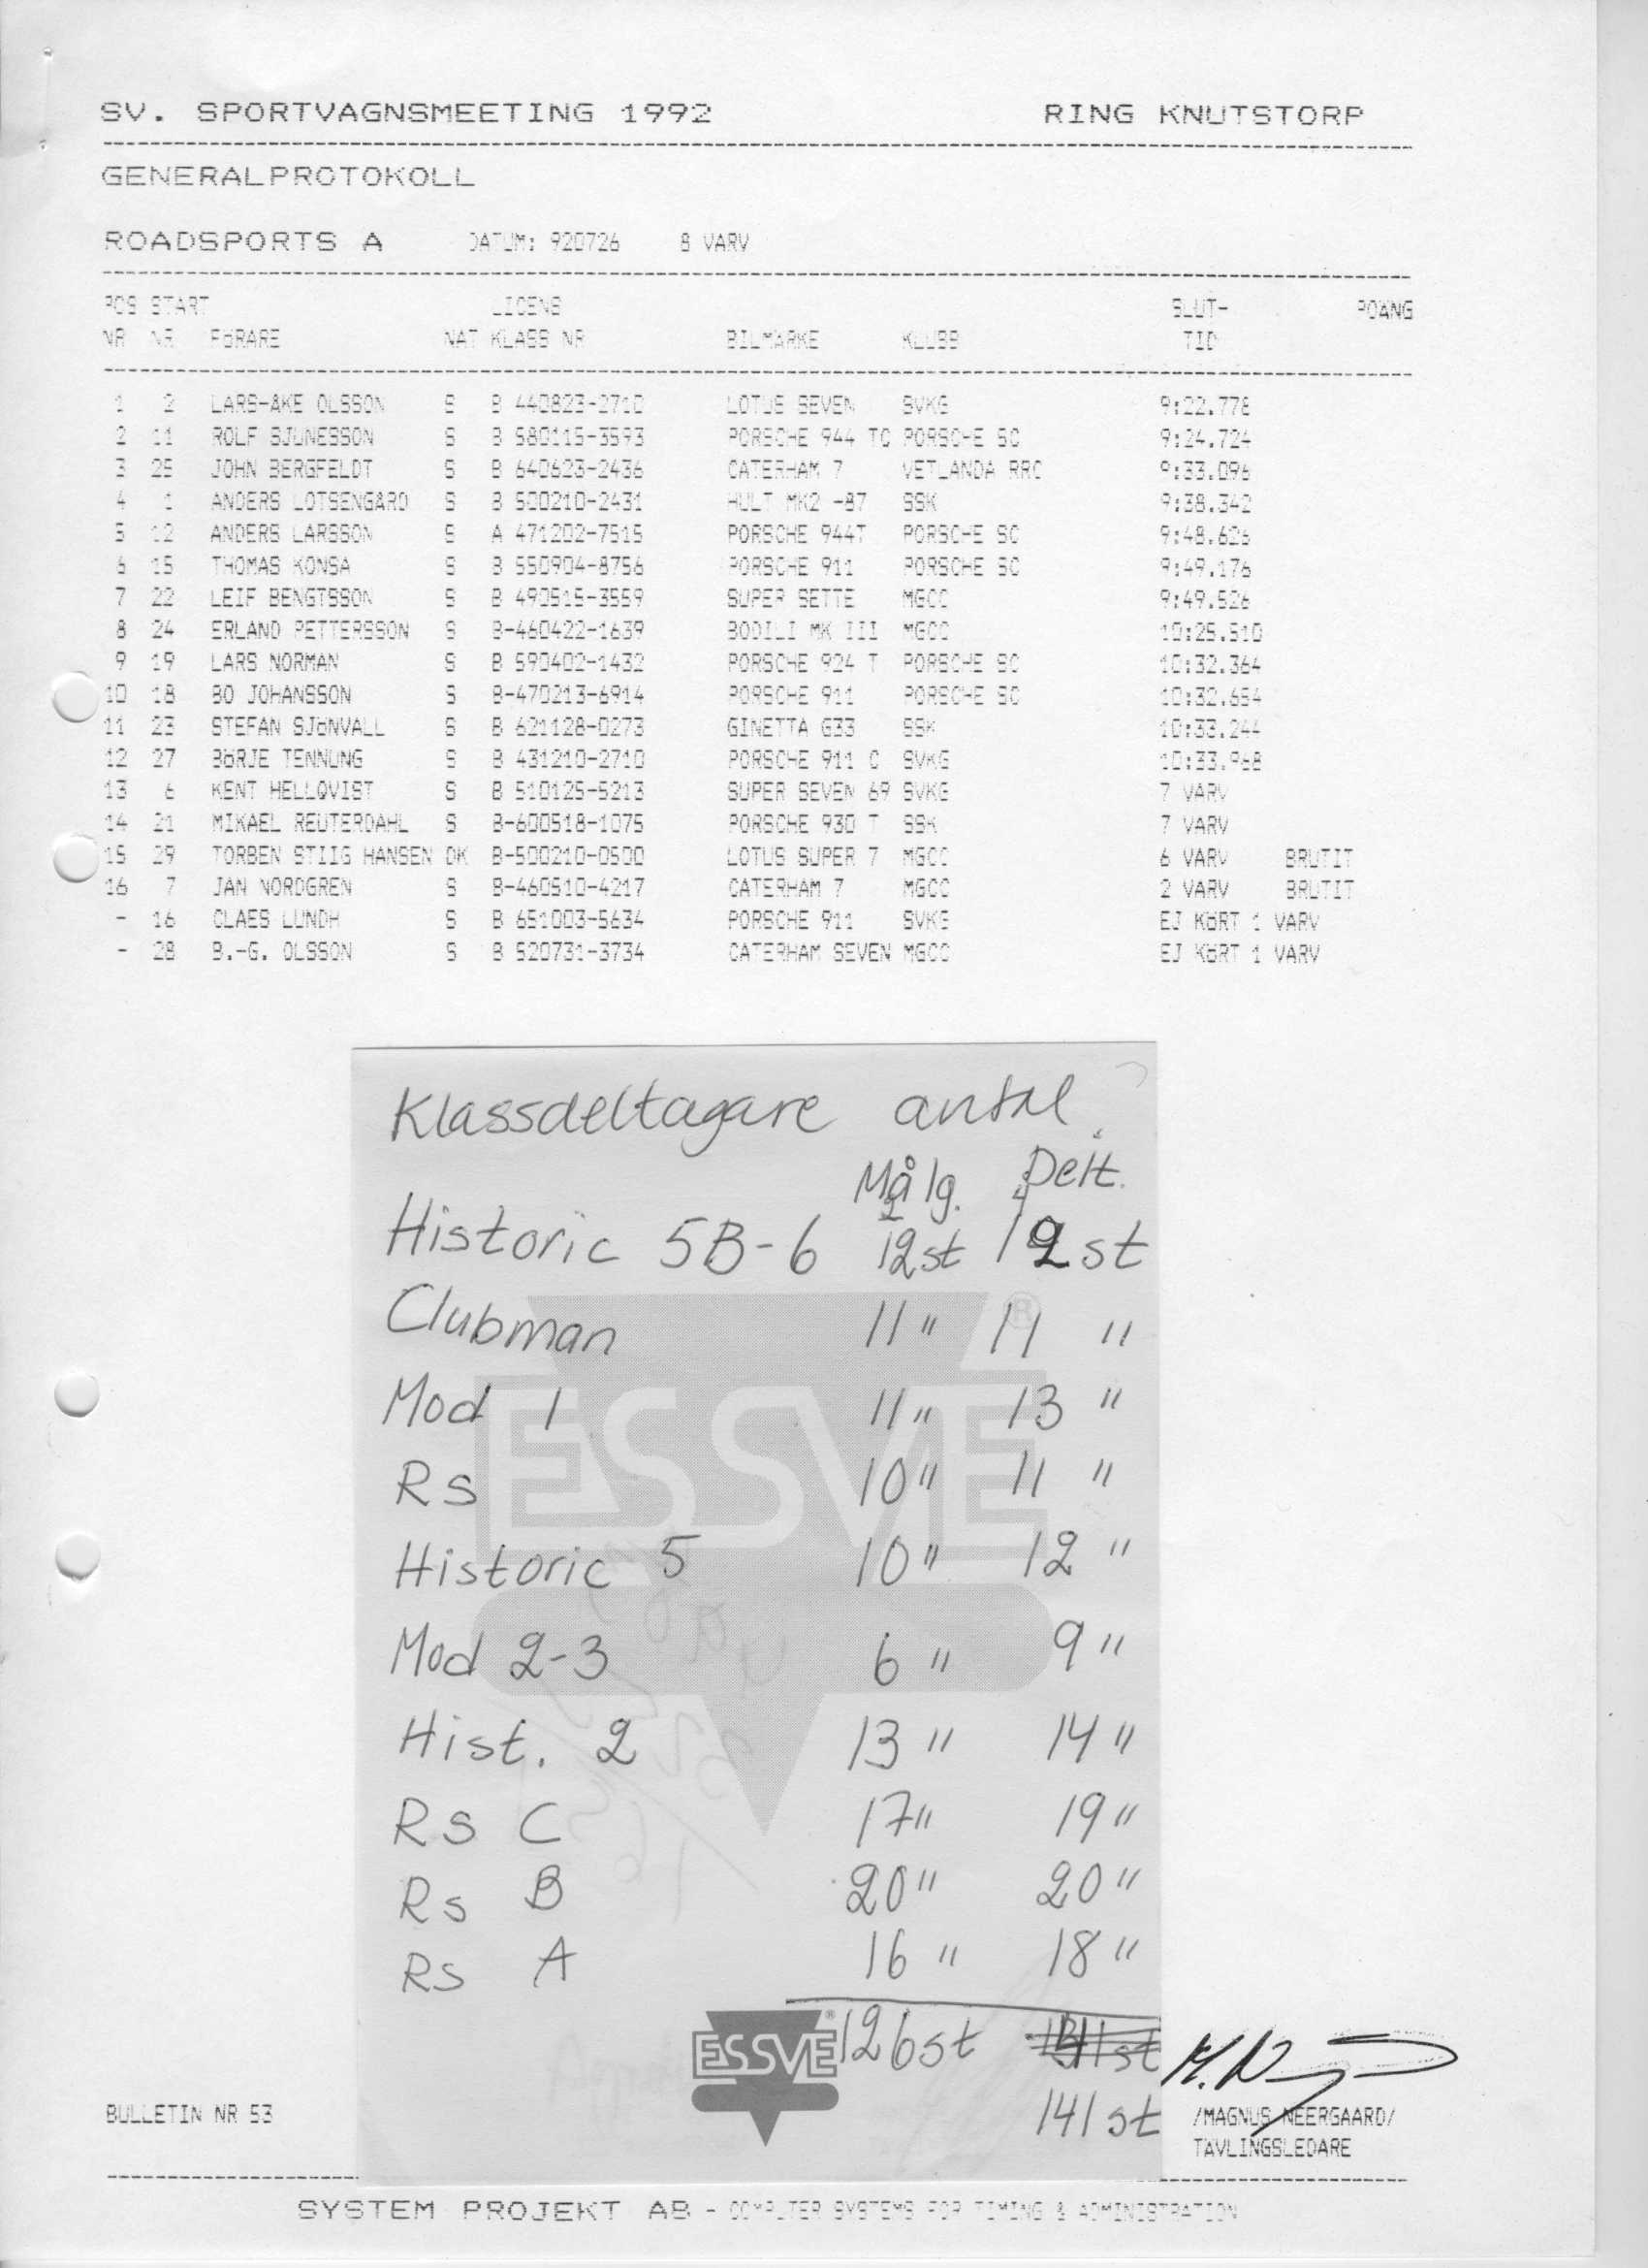 SV. SPORTVAGNSMEETING 1992 RING KNUTSTORP
GENERALPROTOKOLL
ROADSPORTS A DATUM: 920726 8 VARV
POS START LICENS SLUT- POÄNG
NR NR FÖRARE NAT KLASS NR BILMÄRKE KLUBB TID
1 2 LARS-ÅKE OLSSON S B 440823-2710 LOTUS SEVEN SVKG 9:22.778
2 11 ROLF SJUNESSON S B 580115-3593 PORSCHE 944 TC PORSCHE SC 9:24.724
3 25 JOHN BERGFELDT S B 640623-2436 CATERHAM 7 VETLANDA RRC 9:33.096
4 1 ANDERS LOTSENGÅRD S B 500210-2431 HULT MK2 -87 SSK 9:38.342
5 12 ANDERS LARSSON S A 471202-7515 PORSCHE 944T PORSCHE SC 9:48.626
6 15 THOMAS KONSA S B 550904-8756 PORSCHE 911 PORSCHE SC 9:49.176
7 22 LEIF BENGTSSON S B 490515-3559 SUPER SETTE MGCC 9:49.526
8 24 ERLAND PETTERSSON S B-460422-1639 BODILI MK III MGCC 10:25.510
9 19 LARS NORMAN S B 590402-1432 PORSCHE 924 T PORSCHE SC 10:32.364
10 18 BO JOHANSSON S B-470213-6914 PORSCHE 911 PORSCHE SC 10:32.654
11 23 STEFAN SJÖNVALL S B 621128-0273 GINETTA G33 SSK 10:33.244
12 27 BÖRJE TENNUNG S B 431210-2710 PORSCHE 911 C SVKG 10:33.968
13 6 KENT HELLQVIST S B 510125-5213 SUPER SEVEN 69 SVKG 7 VARV
14 21 MIKAEL REUTERDAHL S B-600518-1075 PORSCHE 930 T SSK 7 VARV
15 29 TORBEN STIIG HANSEN DK B-500210-0500 LOTUS SUPER 7 MGCC 6 VARV BRUTIT
16 7 JAN NORDGREN S B-460510-4217 CATERHAM 7 MGCC 2 VARV BRUTIT
- 16 CLAES LUNDH S B 651003-5634 PORSCHE 911 SVKG EJ KÖRT 1 VARV
- 28 B.-G. OLSSON S B 520731-3734 CATERHAM SEVEN MGCC EJ KÖRT 1 VARV
Klassdeltagare antal
Målg. Delt.
Historic 5B-6 12st 12st
Clubman 11 " 11 "
Mod 1 11 " 13 "
Rs 10 " 11 "
Historic 5 10 " 12 "
Mod 2-3 6 " 9 "
Hist. 2 13 " 14 "
Rs C 17 " 19 "
Rs B 20 " 20 "
Rs A 16 " 18 "
126st
141st
ESSVE
ESSVE
BULLETIN NR 53 /MAGNUS NEERGAARD/
TÄVLINGSLEDARE
SYSTEM PROJEKT AB - COMPUTER SYSTEMS FOR TIMING & ADMINISTRATION